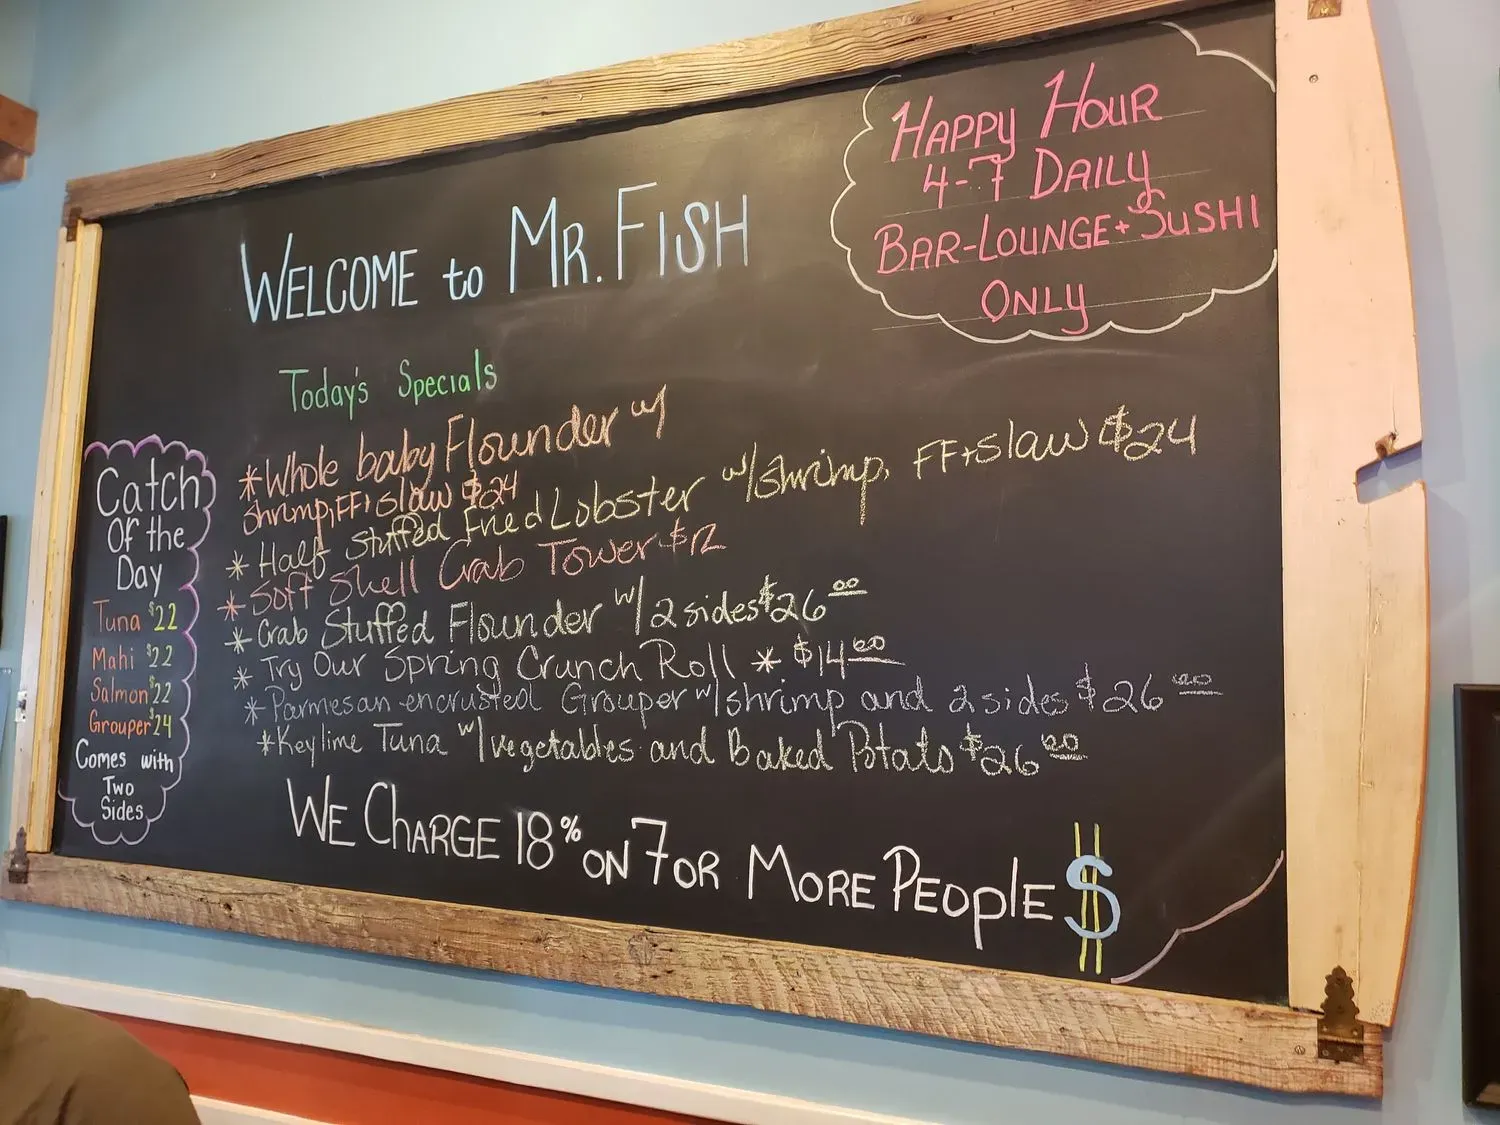 WELCOME to MR. FISH
HAPPY HOUR
4-7 DAILY
BAR-LOUNGE + SUSHI
ONLY
Today's Specials
*Whole baby Flounder w/
shrimp, FF + slaw $24
* Half Stuffed Fried Lobster w/shrimp, FF+slaw $24
* Soft Shell Crab Tower $12
* Crab Stuffed Flounder w/2 sides $26 00
* Try Our Spring Crunch Roll * $14 00
* Parmesan encrusted Grouper w/shrimp and 2 sides $26 00
*Keylime Tuna w/vegetables and Baked Potato $26 00
Catch
Of the
Day
Tuna $22
Mahi $22
Salmon $22
Grouper $24
Comes with
Two
Sides
WE CHARGE 18% ON 7 OR MORE PEOPLE $